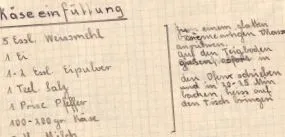 Käseeinfüllung
5 Essl. Weissmehl
1 Ei
1-2 Essl. Eipulver
1 Teel Salz
1 Prise Pfeffer
100-180 gr. Käse
Milch
zu einem glatten
anrühren.
Auf den Teigboden
giessen, sofort in
den Ofen schieben
und in 20-25 Min
backen, heiss auf
den Tisch bringen